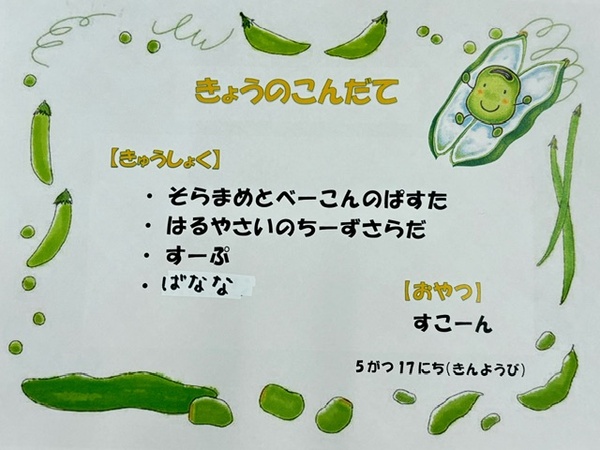 きょうのこんだて
【きゅうしょく】
・そらまめとべーこんのぱすた
・はるやさいのちーずさらだ
・すーぷ
・ばなな
【おやつ】
すこーん
5がつ17にち(きんようび)